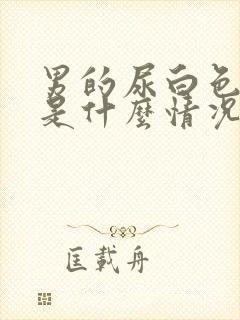 男的尿白色
是什麼情况
匡載舟